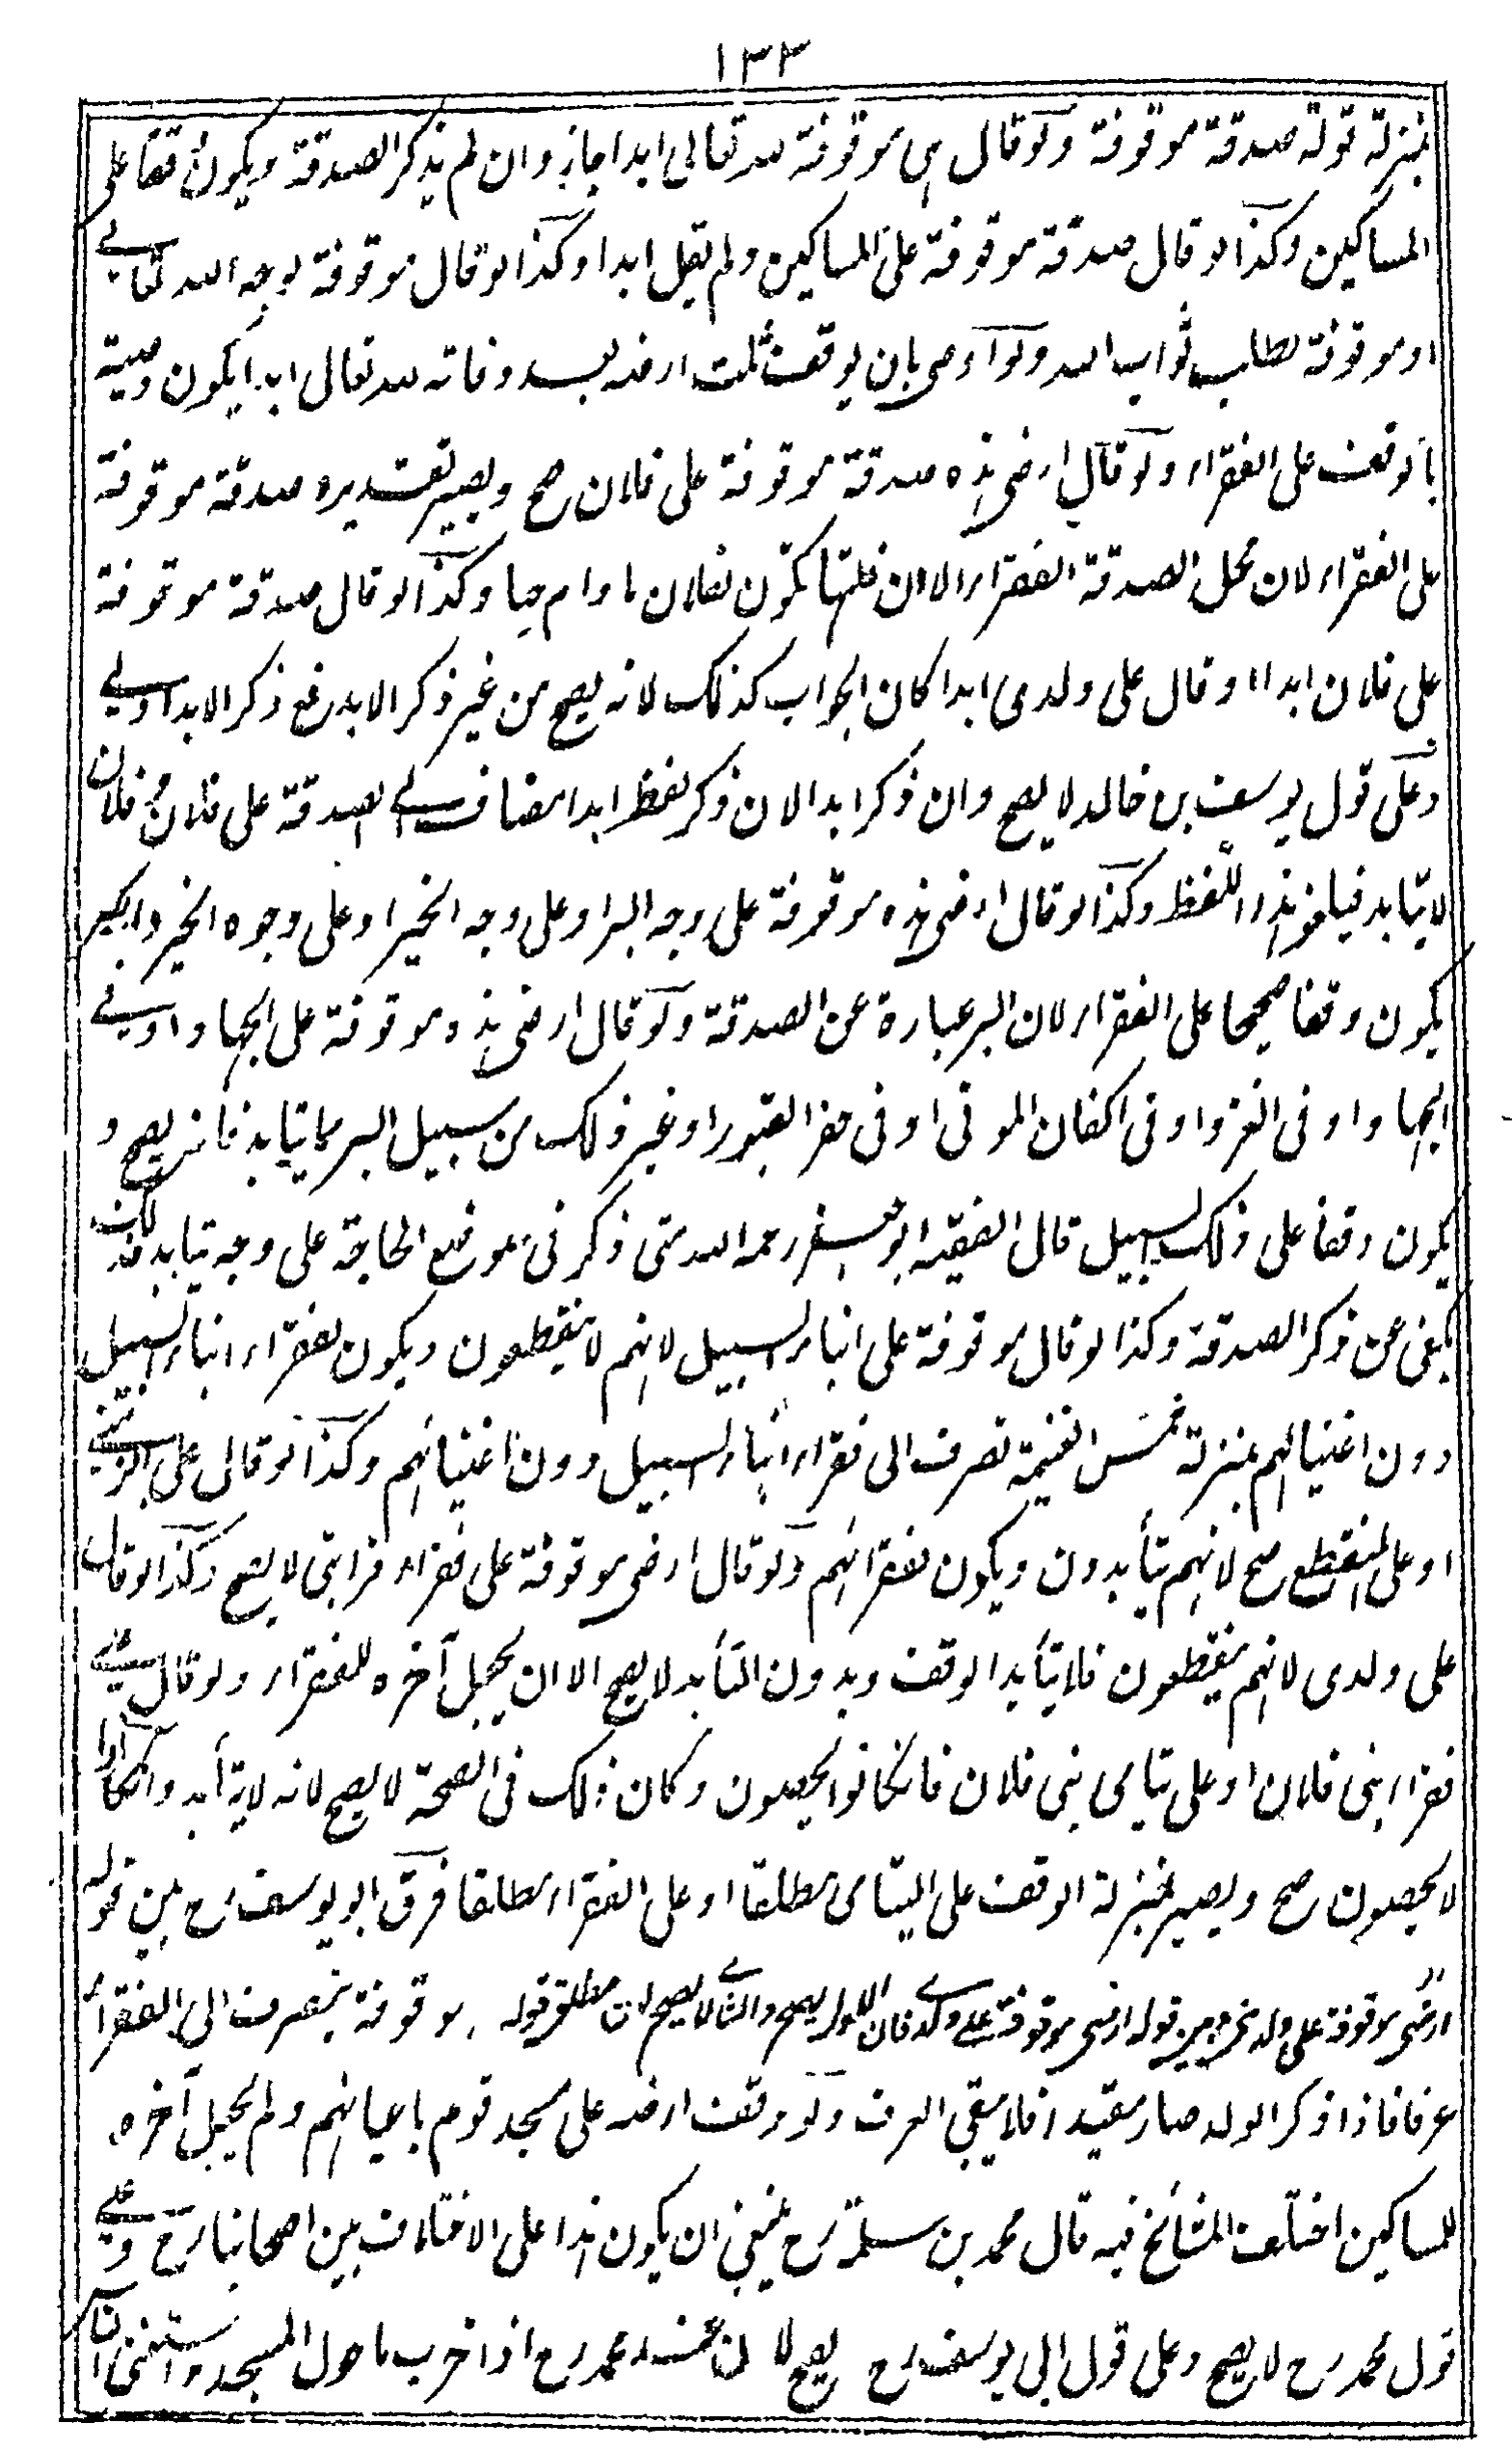 ١٣٣
بمنزلة قوله صدقة موقوفة ولو قال هي موقوفة لله تعالى ابدا جاز وان لم يذكر الصدقة ويكون وقفا على
المساكين وكذا لو قال صدقة موقوفة على المساكين ولم يقل ابدا وكذا لو قال موقوفة لوجه الله تعالى
او موقوفة لطلب ثواب الله ولو اوصى بان يوقف ثلث ارضه بعد وفاته لله تعالى ابدا يكون وصية
بالوقف على الفقراء ولو قال ارضى هذه صدقة موقوفة على فلان صح ويصير تقديره صدقة موقوفة
على الفقراء لان محل الصدقة الفقراء الا ان غلتها تكون لفلان ما دام حيا وكذا لو قال صدقة موقوفة
على فلان ابدا او قال على ولدى ابدا كان الجواب كذلك لانه يصح من غير ذكر الابد فمع ذكر الابد اولى
وعلى قول يوسف بن خالد لا يصح وان ذكر ابدا لان ذكر لفظ ابدا مضاف الى الصدقة على فلان وفلان
لا يتابد فيلغو هذا اللفظ وكذا لو قال ارضى هذه موقوفة على وجه البر او على وجه الخير او على وجوه الخير والبر
يكون وقفا صحيحا على الفقراء لان البر عبارة عن الصدقة ولو قال ارضى هذه موقوفة على الجهاد او فى
الجهاد او فى الغزو او فى اكفان الموتى او فى حفر القبور او غير ذلك من سبيل البر مما يتابد فانه يصح و
يكون وقفا على ذلك السبيل قال الفقيه ابو جعفر رحمه الله متى ذكر فى موضع الحاجة على وجه يتابد فذلك
يكفى عن ذكر الصدقة وكذا لو قال موقوفة على ابناء السبيل لانهم لا ينقطعون ويكون لفقراء ابناء السبيل
دون اغنيائهم بمنزلة خمس الغنيمة تصرف الى فقراء ابناء السبيل دون اغنيائهم وكذا لو قال على الزمنى
او على المنقطع صح لانهم يتأبدون ويكون لفقرائهم ولو قال ارضى موقوفة على فقراء قرابتى لا يصح وكذا لو قال
على ولدى لانهم ينقطعون فلا يتأبد الوقف وبدون التأبد لا يصح الا ان يجعل آخره للفقراء ولو قال على
فقراء بنى فلان او على يتامى بنى فلان فان كانوا يحصون وكان ذلك فى الصحة لا يصح لانه لا يتأبد وان كانوا
لا يحصون صح ويصير بمنزلة الوقف على اليتامى مطلقا او على الفقراء مطلقا فرق ابو يوسف رح بين قوله
ارضى موقوفة على ولدى وبين قوله ارضى موقوفة فان الاول يصح والثانى لا يصح لان مطلق قوله موقوفة ينصرف الى الفقراء
عرفا فاذا ذكر الولد صار مقيدا فلا يبقى العرف ولو وقف ارضه على مسجد قوم باعيانهم ولم يجعل آخره
للمساكين اختلف المشائخ فيه قال محمد بن سلمة رح ينبغى ان يكون هذا على الاختلاف بين اصحابنا رح وعلى
قول محمد رح لا يصح وعلى قول ابى يوسف رح يصح لان عند محمد رح اذا خرب ما حول المسجد واستغنى الناس